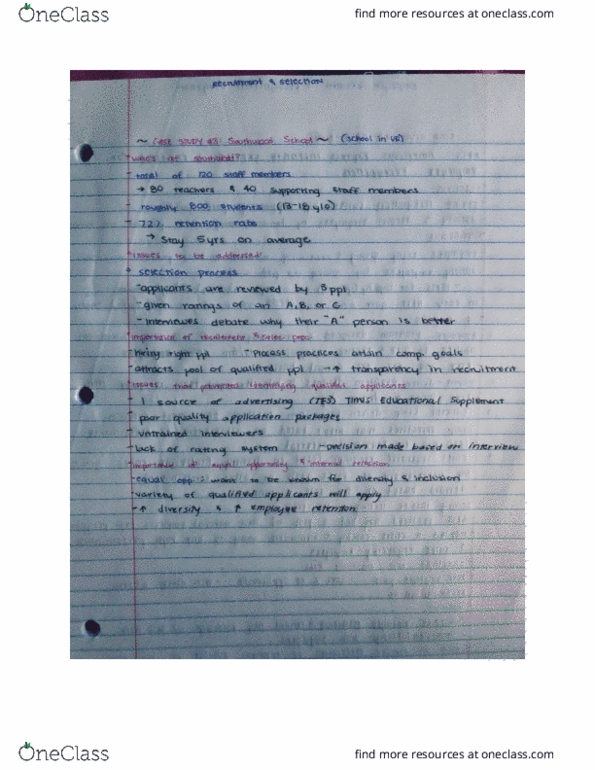 OneClass
find more resources at oneclass.com
Recruitment & selection
~ Case Study #3: Southwood School ~ (school in US)
total of 120 staff members
→ 80 teachers & 40 supporting staff members
- roughly 800 students (13-18 y/o)
- 72% retention rate
→ Stay 5yrs on average
Issues to be addressed
selection process
-applicants are reviewed by 3 ppl
-given ratings of an A, B, or C
-interviewes debate why their "A" person is better
importance of recruitment &
-hiring right ppl -Process practices attain comp. goals
-attracts pool of qualified ppl -↑ transparency in recruitment
Issues that identifying qualified applicants
- 1 source of advertising (TES) Times Educational Supplement
- poor quality application packages
- untrained interviewers
- lack of rating system -decision made based on interview
importance of equal opportunity & internal retention
-equal opp: want to be known for diversity & inclusion
-variety of qualified applicants will apply
-↑ diversity & ↑ employee retention
OneClass
find more resources at oneclass.com